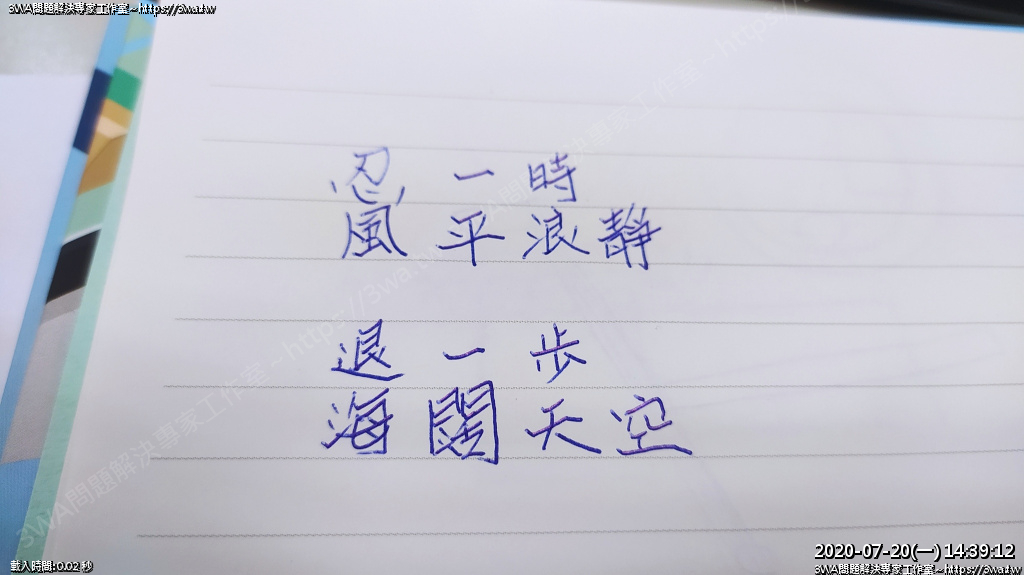 3WA問題解決專家工作室~https://3wa.tw
忍一時
風平浪靜
退一步
海闊天空
3WA問題解決專家工作室~https://3wa.tw
載入時間:0.02 秒
2020-07-20(一) 14:39:12
3WA問題解決專家工作室~https://3wa.tw